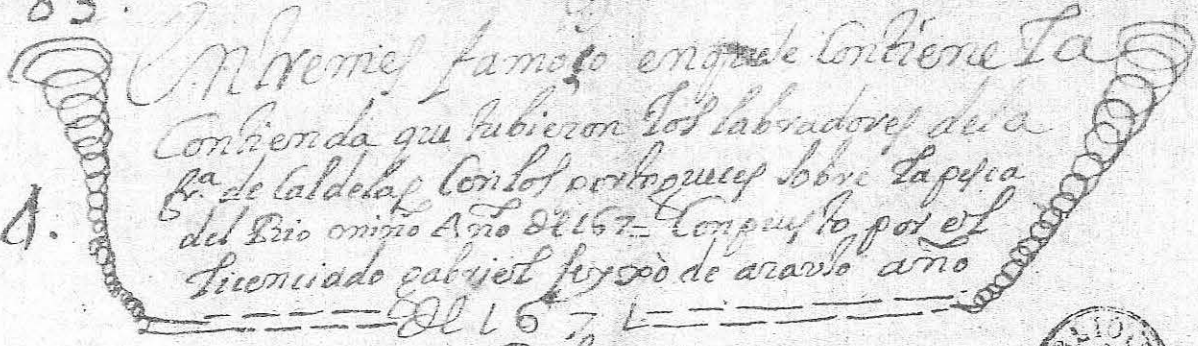 83.
Entremes famoso enque se Contiene La
Contienda que tubieron Los labradores de la
fra. de Caldelas Con los portugueses sobre La pesca
del Rio miño Año de 167= Conpuesto por el
Licenciado gabriel feyxò de arauxo año
de 1671
1.